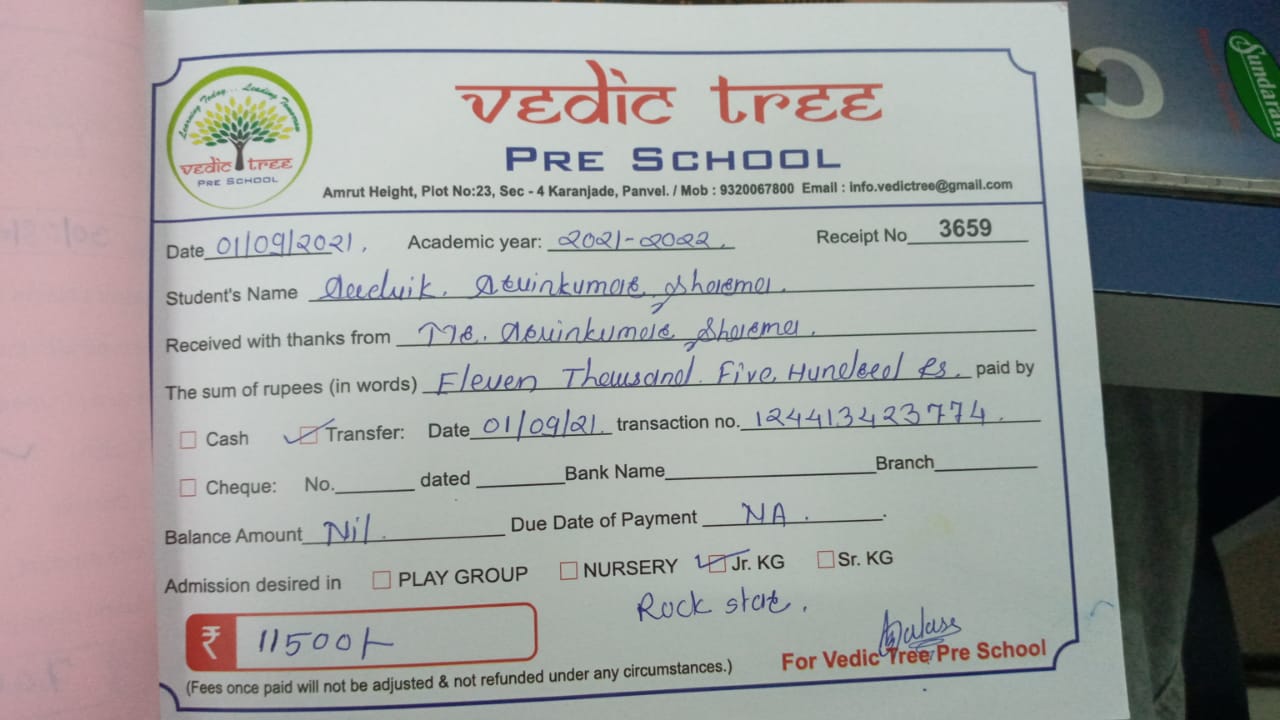 Learning Today... Leading Tomorrow
vedic tree
PRE SCHOOL
vedic tree
PRE SCHOOL
Amrut Height, Plot No:23, Sec - 4 Karanjade, Panvel. / Mob : 9320067800 Email : info.vedictree@gmail.com
Date 01/09/2021. Academic year: 2021-2022. Receipt No 3659
Student's Name Aadvik. Arvinkumar Sharma.
Received with thanks from Mr. Arvinkumar Sharma.
The sum of rupees (in words) Eleven Thousand Five Hundred Rs. paid by
Cash Transfer: Date 01/09/21. transaction no. 124413423774.
Cheque: No. dated Bank Name Branch
Balance Amount Nil. Due Date of Payment NA.
Admission desired in PLAY GROUP NURSERY Jr. KG Sr. KG
Rock star.
₹ 11500/-
For Vedic Tree Pre School
(Fees once paid will not be adjusted & not refunded under any circumstances.)
Sundaram